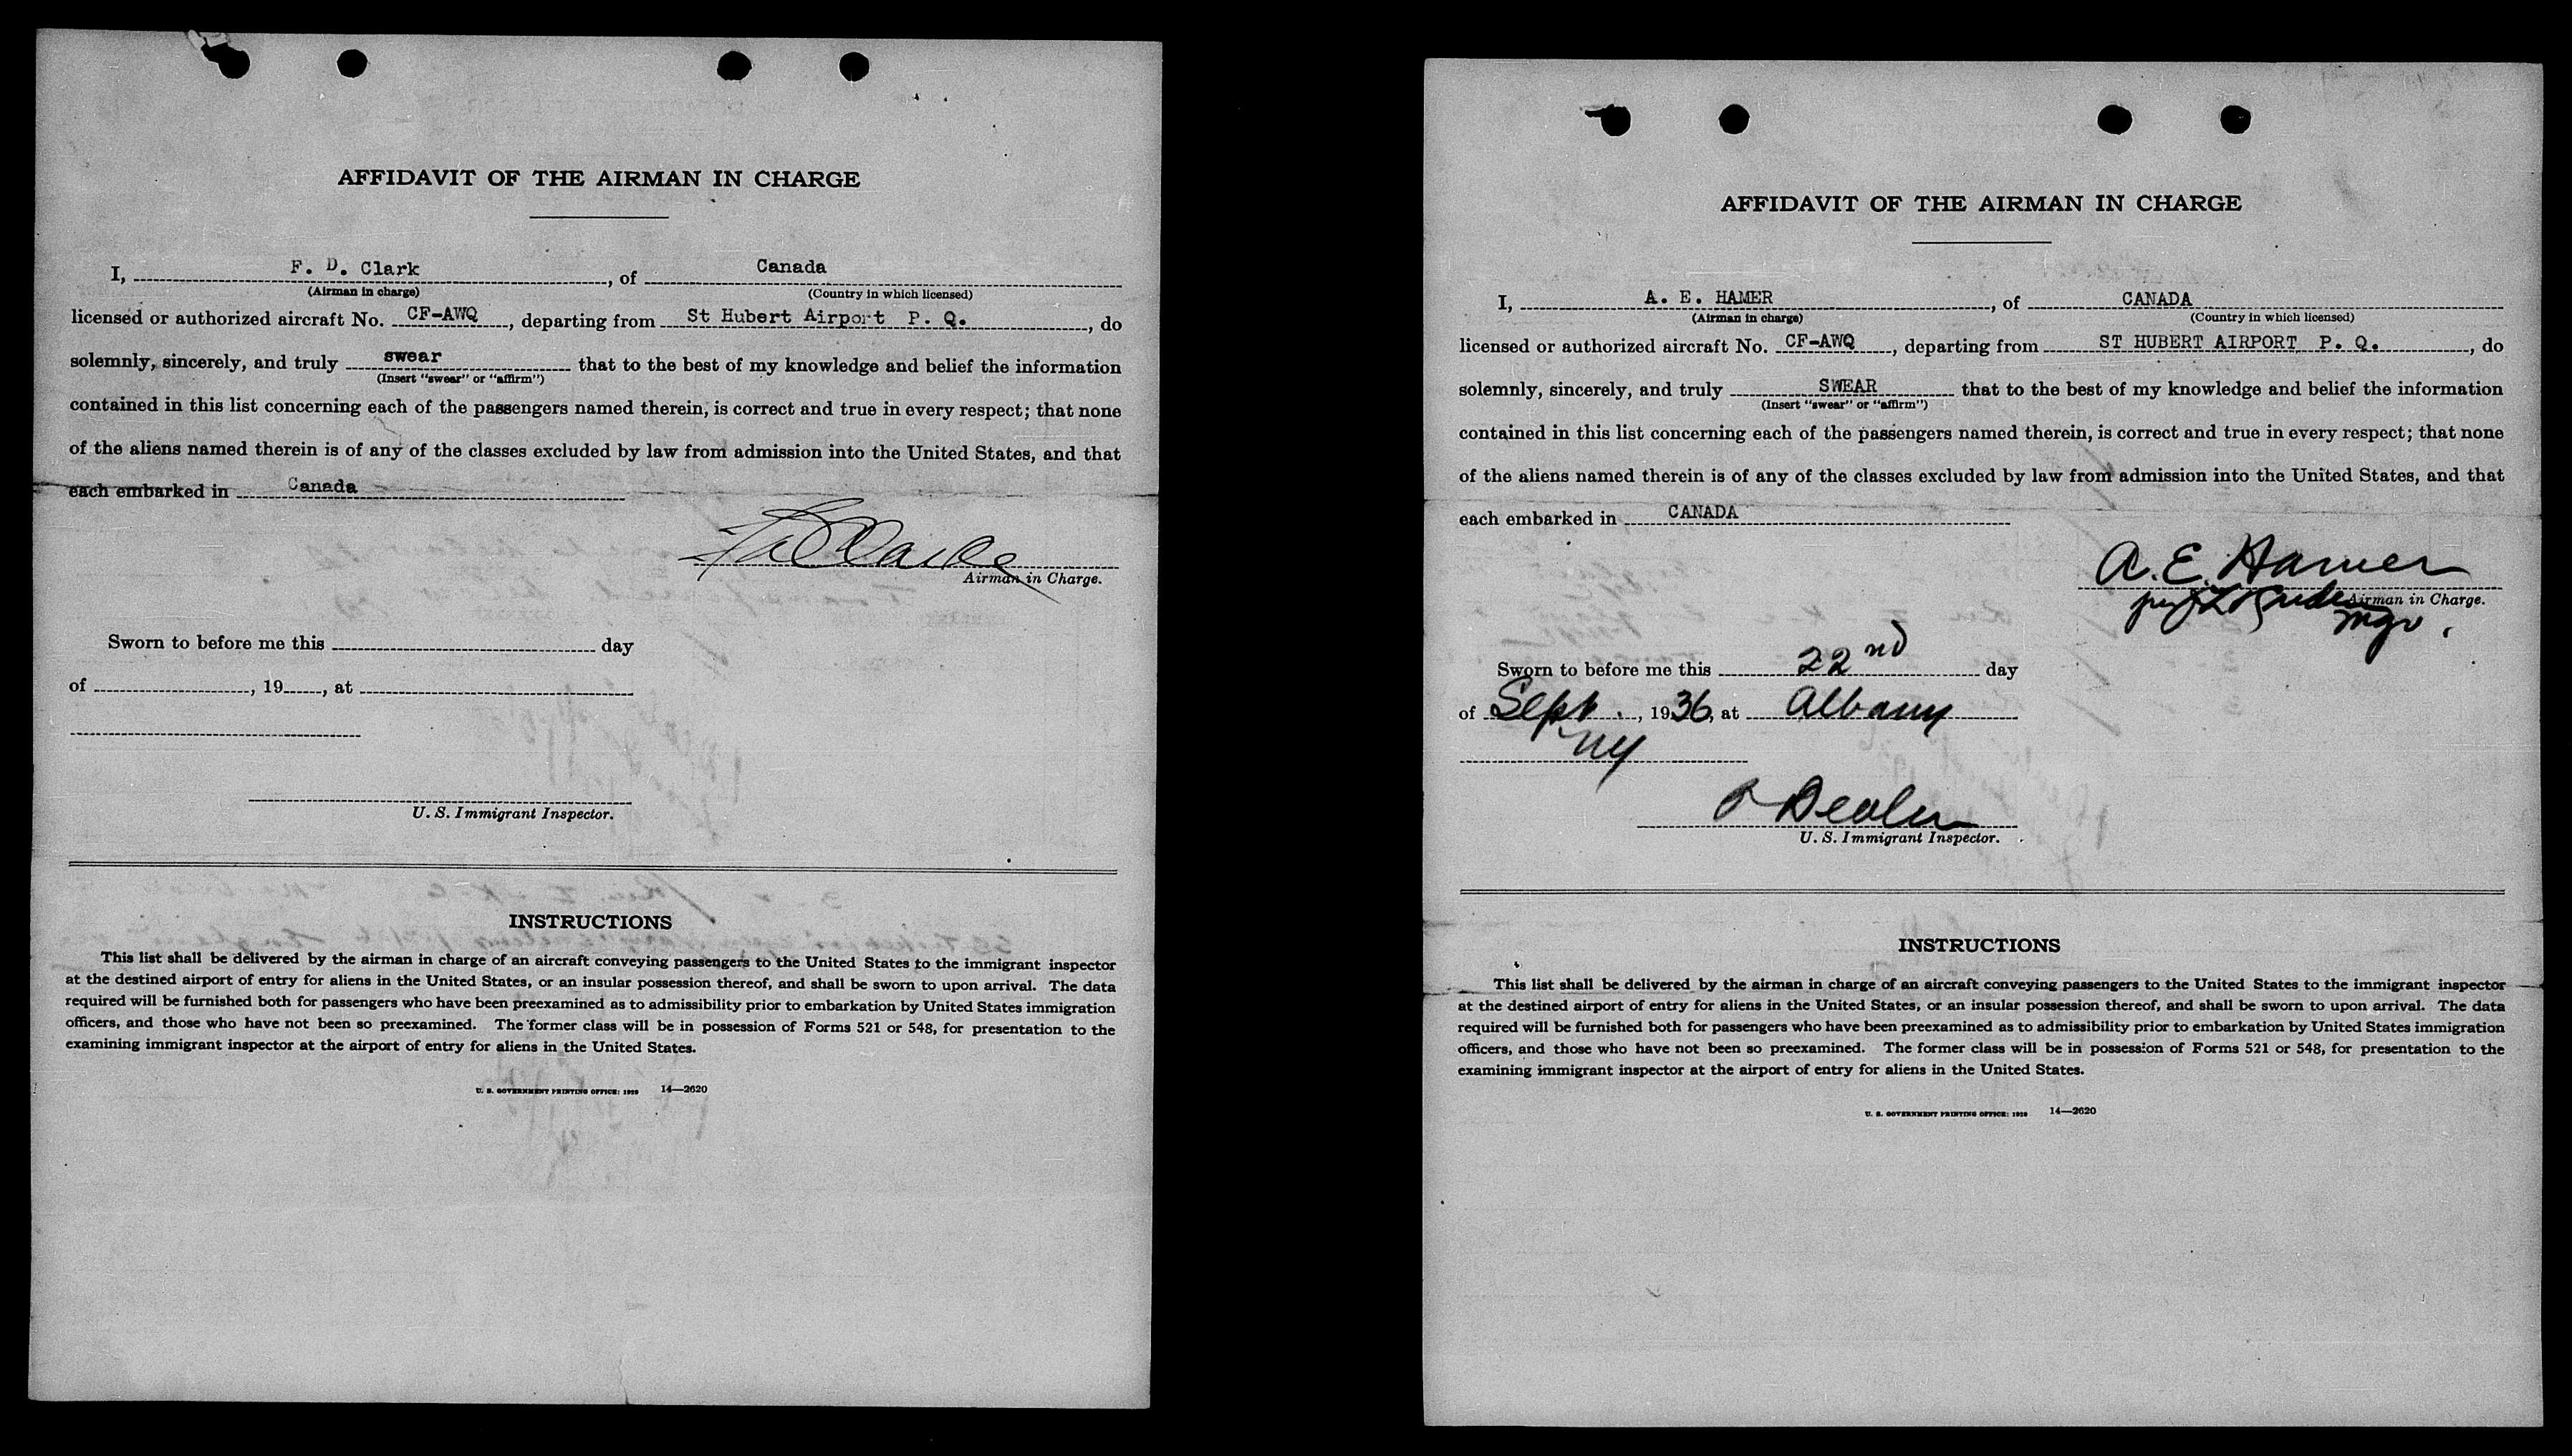 AFFIDAVIT OF THE AIRMAN IN CHARGE
I, F. D. Clark, of Canada
(Airman in charge) (Country in which licensed)
licensed or authorized aircraft No. CF-AWQ, departing from St Hubert Airport P. Q., do
solemnly, sincerely, and truly swear that to the best of my knowledge and belief the information
(Insert "swear" or "affirm")
contained in this list concerning each of the passengers named therein, is correct and true in every respect; that none
of the aliens named therein is of any of the classes excluded by law from admission into the United States, and that
each embarked in Canada
Airman in Charge.
Sworn to before me this day
of , 19 , at
U. S. Immigrant Inspector.
INSTRUCTIONS
This list shall be delivered by the airman in charge of an aircraft conveying passengers to the United States to the immigrant inspector
at the destined airport of entry for aliens in the United States, or an insular possession thereof, and shall be sworn to upon arrival. The data
required will be furnished both for passengers who have been preexamined as to admissibility prior to embarkation by United States immigration
officers, and those who have not been so preexamined. The former class will be in possession of Forms 521 or 548, for presentation to the
examining immigrant inspector at the airport of entry for aliens in the United States.
U. S. GOVERNMENT PRINTING OFFICE: 1929 14—2620
AFFIDAVIT OF THE AIRMAN IN CHARGE
I, A. E. HAMER, of CANADA
(Airman in charge) (Country in which licensed)
licensed or authorized aircraft No. CF-AWQ, departing from ST HUBERT AIRPORT P. Q., do
solemnly, sincerely, and truly SWEAR that to the best of my knowledge and belief the information
(Insert "swear" or "affirm")
contained in this list concerning each of the passengers named therein, is correct and true in every respect; that none
of the aliens named therein is of any of the classes excluded by law from admission into the United States, and that
each embarked in CANADA
A. E. Hamer
Airman in Charge.
per Mgr.
Sworn to before me this 22nd day
of Sept., 1936, at Albany
NY
U. S. Immigrant Inspector.
INSTRUCTIONS
This list shall be delivered by the airman in charge of an aircraft conveying passengers to the United States to the immigrant inspector
at the destined airport of entry for aliens in the United States, or an insular possession thereof, and shall be sworn to upon arrival. The data
required will be furnished both for passengers who have been preexamined as to admissibility prior to embarkation by United States immigration
officers, and those who have not been so preexamined. The former class will be in possession of Forms 521 or 548, for presentation to the
examining immigrant inspector at the airport of entry for aliens in the United States.
U. S. GOVERNMENT PRINTING OFFICE: 1929 14—2620